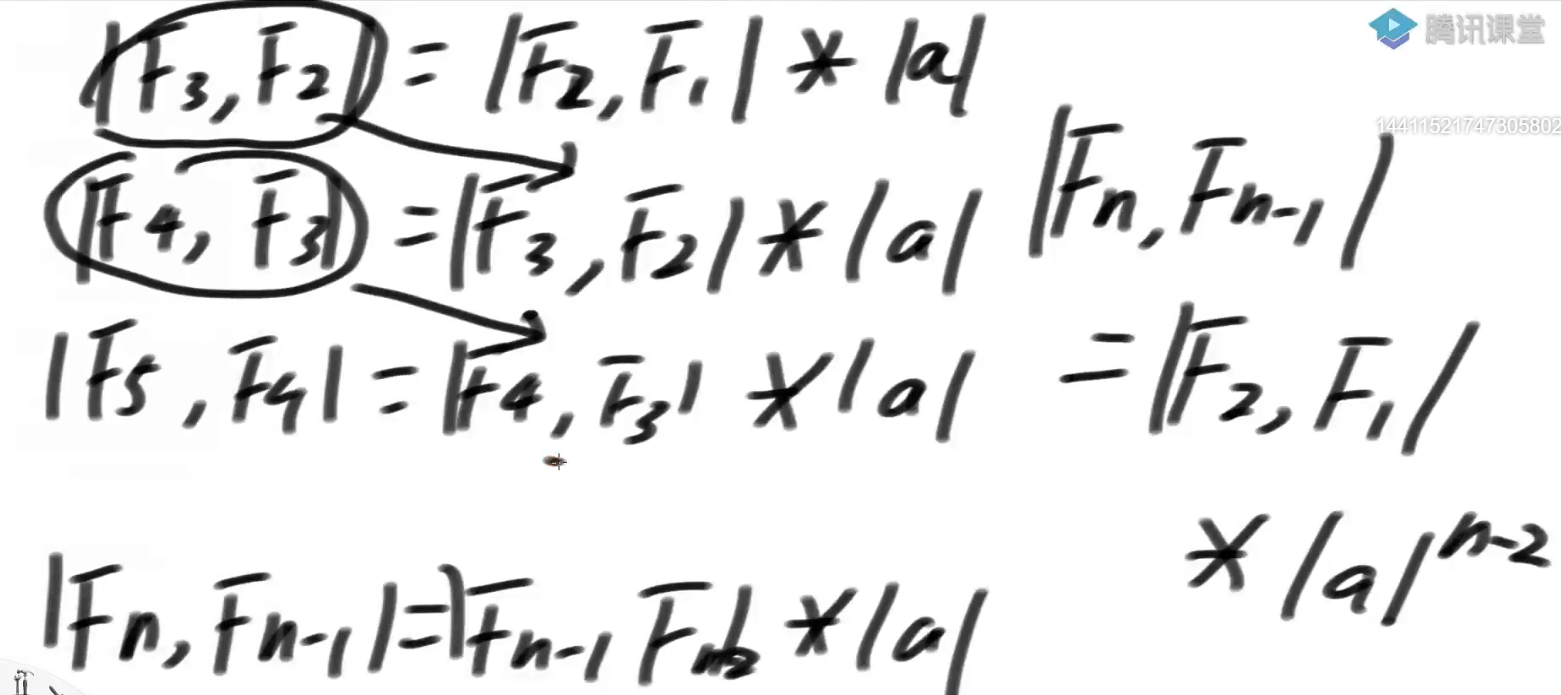 腾讯课堂
14411521747305802
|F₃, F₂| = |F₂, F₁| * |a|
|F₄, F₃| = |F₃, F₂| * |a|
|F₅, F₄| = |F₄, F₃| * |a|
|Fₙ, Fₙ₋₁| = |Fₙ₋₁ Fₙ₋₂| * |a|
|Fₙ, Fₙ₋₁|
= |F₂, F₁|
* |a|ⁿ⁻²